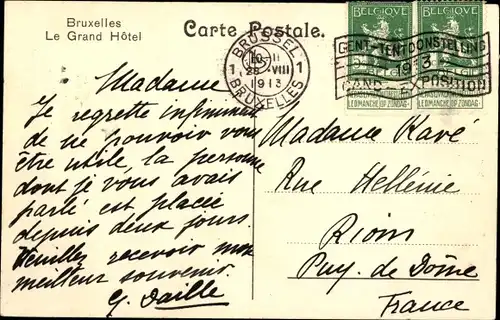 Bruxelles
Le Grand Hôtel
Carte Postale.
BRUSSEL
1 10-11 1
25-VIII
1913
BRUXELLES
BELGIQUE BELGIQUE
GENT-TENTOONSTELLING
1913
GAND-EXPOSITION
Madame
Je regrette infiniment
de ne pouvoir vous
être utile, la personne
dont je vous avais
parlé est placée
depuis deux jours.
Veuillez recevoir mon
meilleur souvenir.
G. Daille
Madame Ravé
Rue Hellénie
Riom
Puy. de Dôme
France